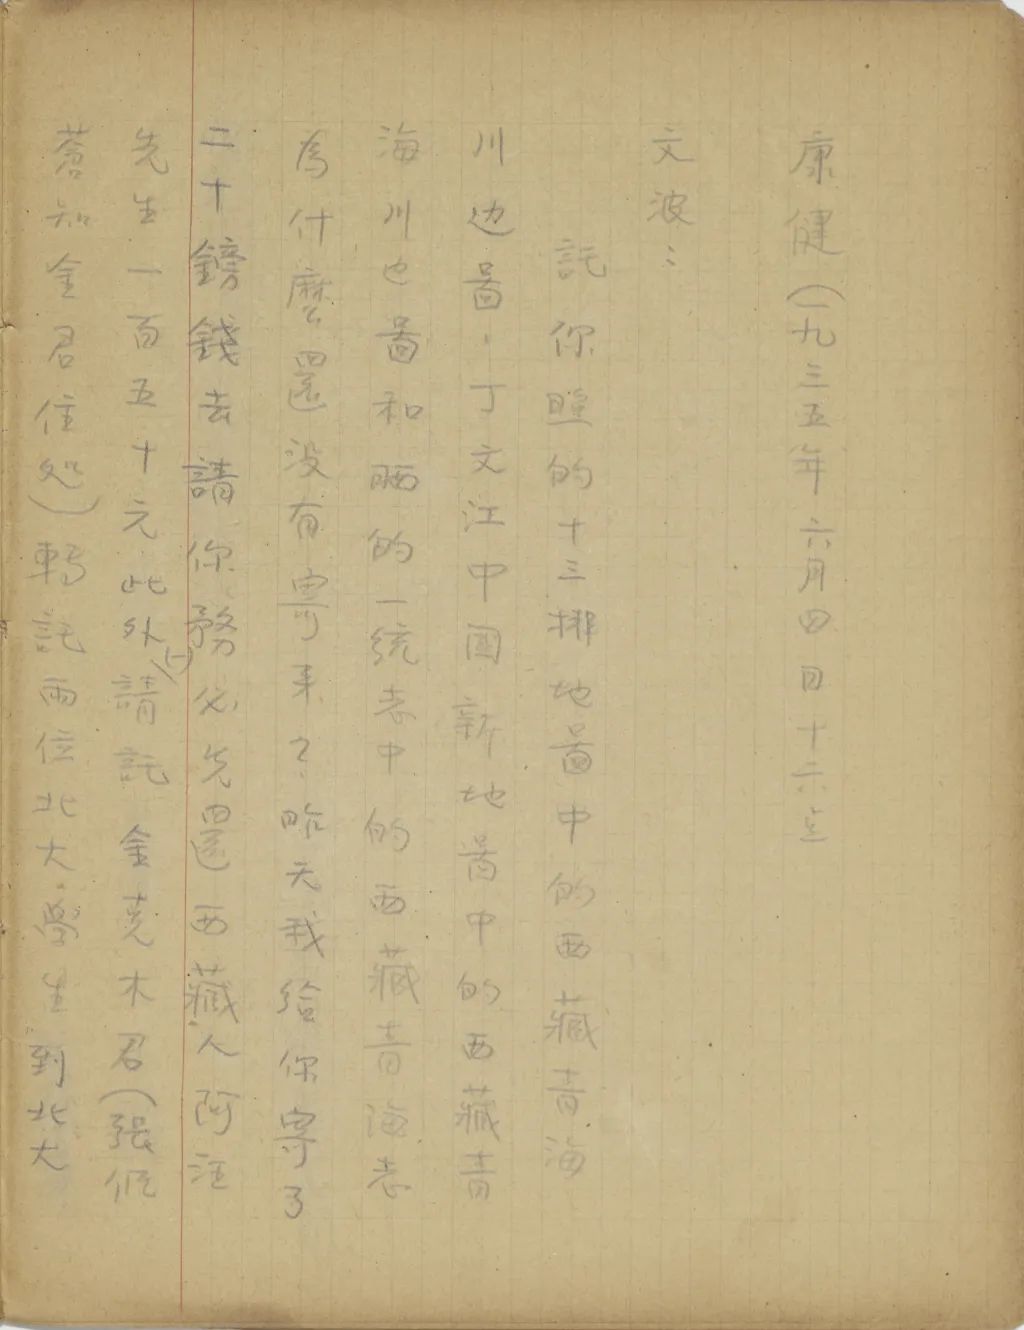 康健(一九三五年六月四日十六点
文波：
託你曬的十三排地圖中的西藏青海
川边圖，丁文江中國新地圖中的西藏青
海川边圖和晒的一統志中的西藏青海志
為什麼還没有寄來？昨天我給你寄了
二十鎊錢去請你務必先還西藏人阿汪
先生一百五十元此外(一)請託金克木君(張
蒼知金君住処)轉託兩位北大學生到北大